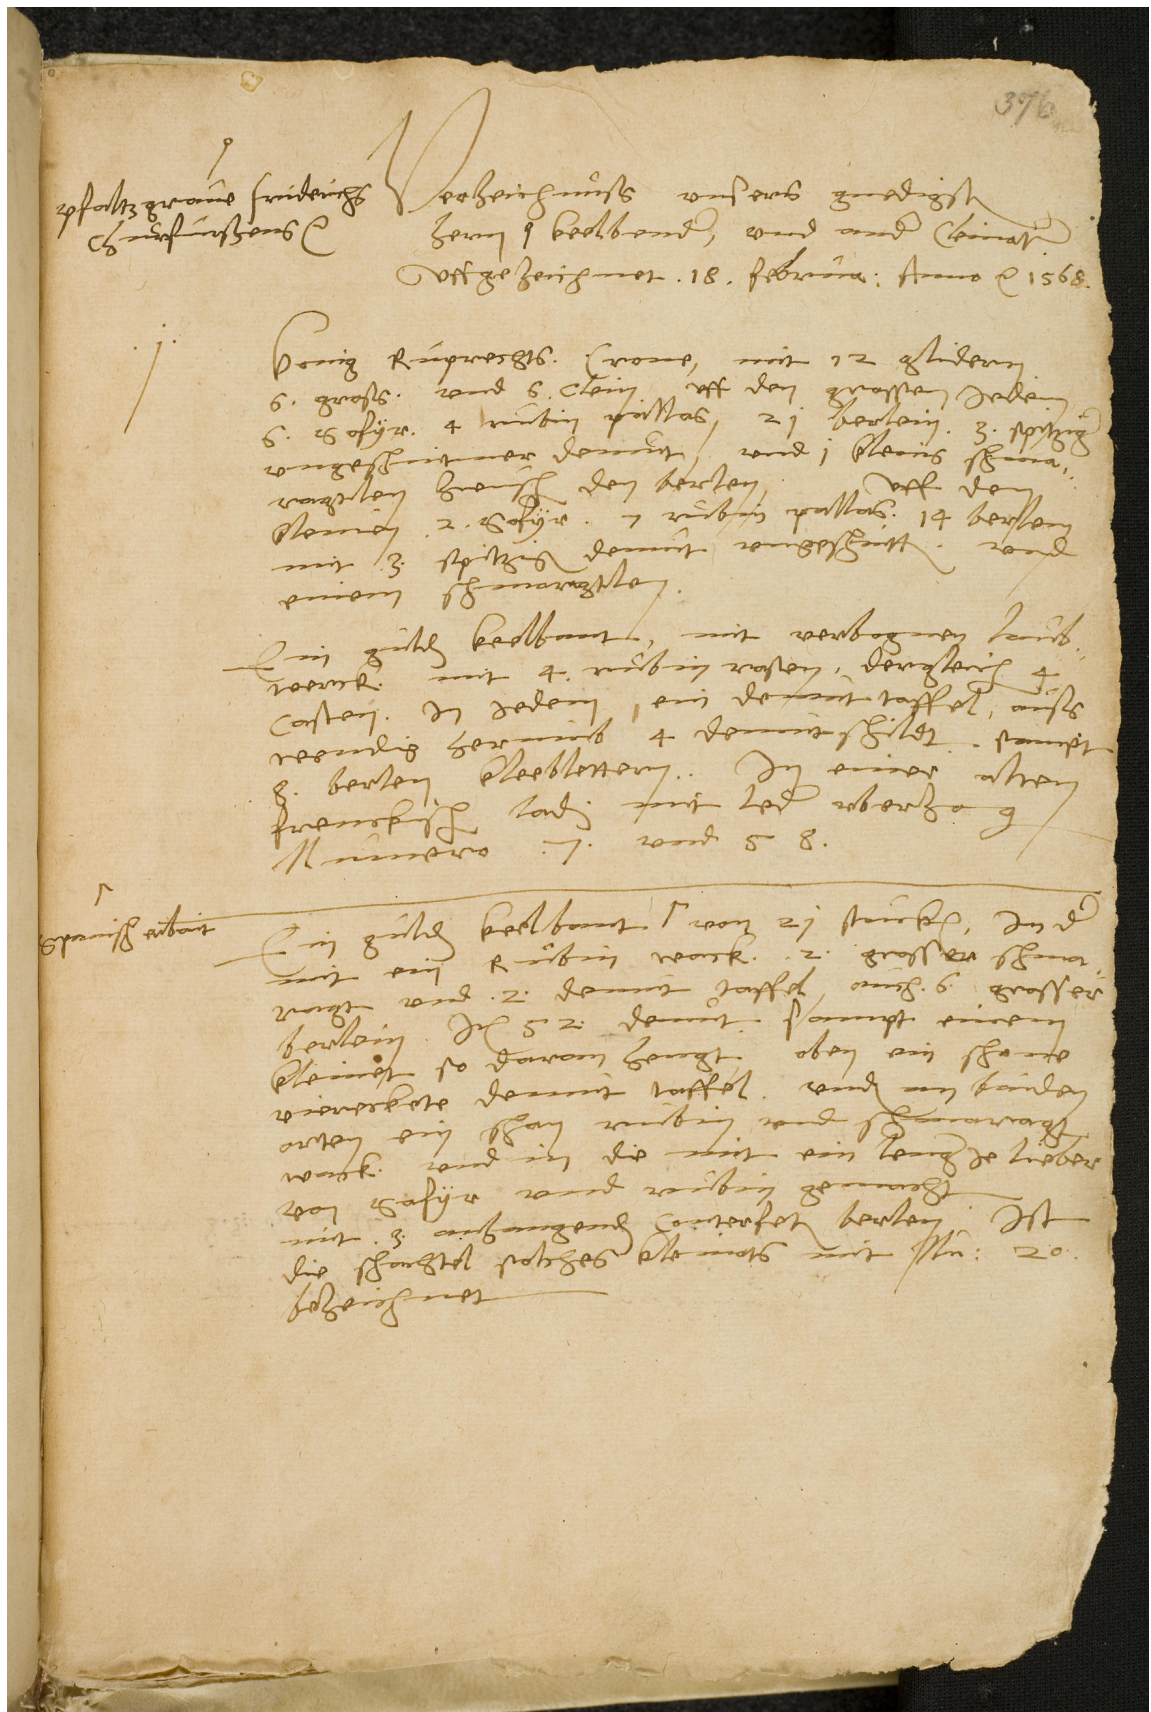 376
pfaltzgraue friderichs
Churfurstens
Verzeichnuß unsers gnedigst
hern keelbender, und ander Cleinoter
Uffgezeichnet .18. februar: Anno 1568.
.j.
konig Ruprechts. Crone, mit 12 glidern
6. gross. und 6. Clein uff den grossen jeden
6. Safyr. 4 rubin pallas, 21 berlein. 3. spitzig
ungeschnitner demut, und j kleins schma-
ragtlen zwusch den berlen, Uff den
kleinen .2. Safyr. 7 rubin pallas. 14 berlen
mit .3. spitzig demut ungeschnitt. und
einem schmaragtlen.
Ein guld keelbant, mit verbognen laub-
werck. mit 4. rubin rosen, dergleich 4
Casten. In jeden, ein demut taffel, auß
wendig herumb 4 demut schildt. sampt
8. berlen kleeblettern. In einer alten
frenckisch lad. mit leder uberzog
Numero .7. und 58.
Spanisch erbait
Ein guld keelbant von 21 stuck, In der
mit ein Rubin wack. .2. grosser schma-
ragt und .2. demut taffel, auch .6. grosser
berlein. 52. demut sampt einem
kleinet so daran hengt. oben ein schone
viereckete demut taffel. und an beiden
orten ein schon rubin und schmaragt
wack. und in die mit ein lengle lieber
von Safyr und rubin gemacht
mit .3. anhangend Conterfet berlen. Ist
die schachtel solches kleinots mit Nu: 20.
bezeichnet